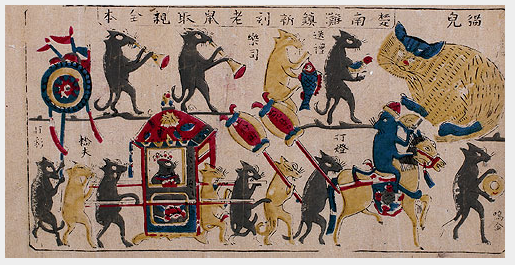 貓兒
楚南灘鎮新刻老鼠取親全本
送禮
樂司
鳴金
打燈
轎夫